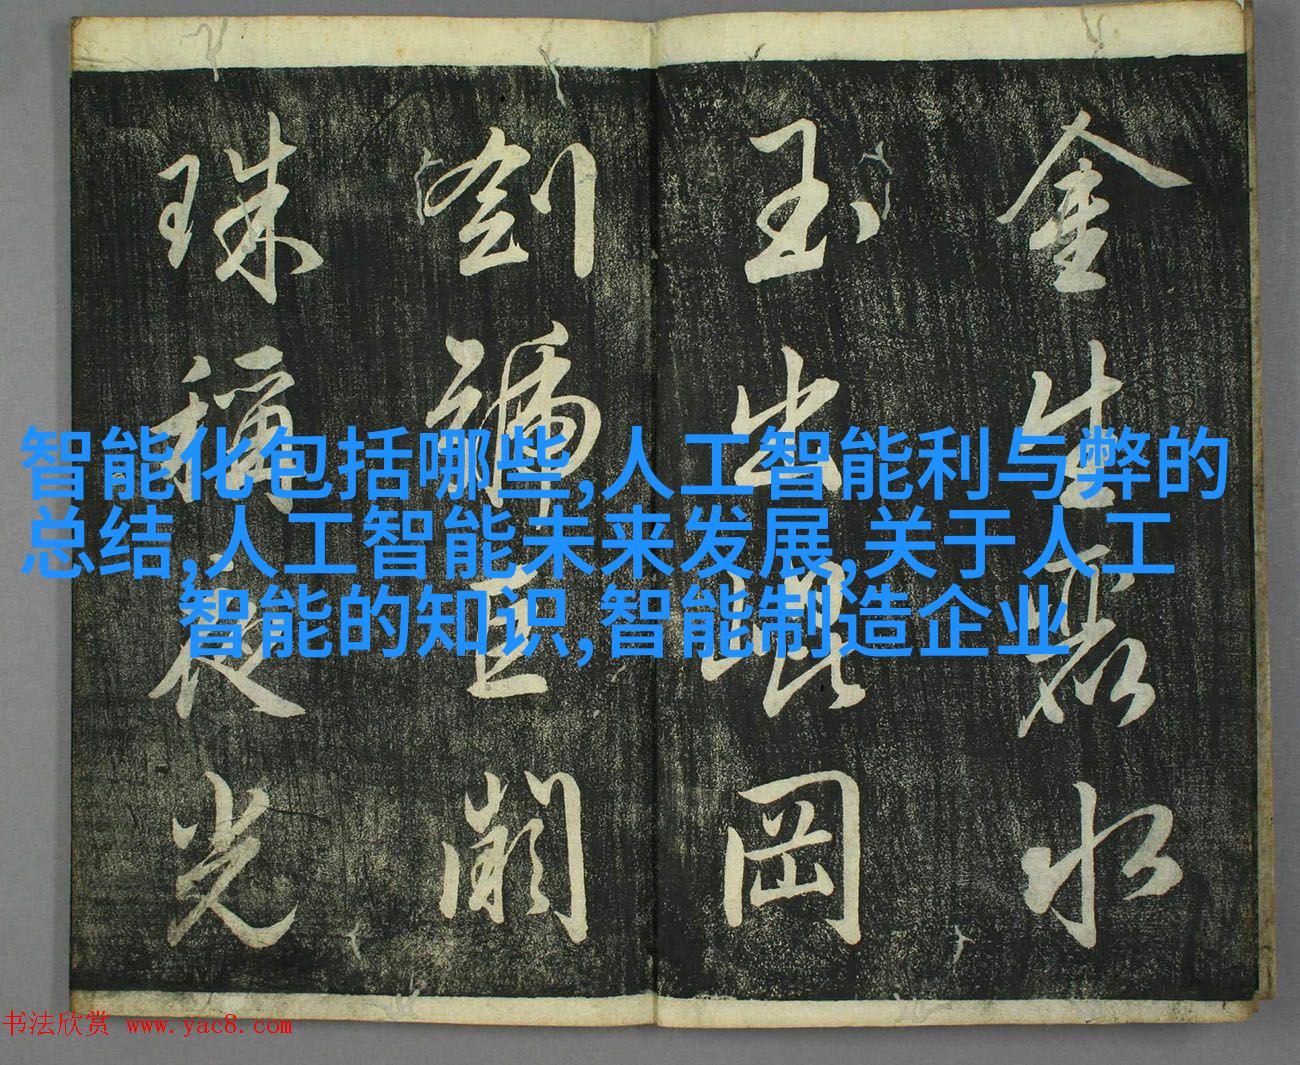 金生麗水
玉出崑岡
劍號巨闕
珠稱夜光
智能化包括哪些,人工智能利与弊的
总结,人工智能未来发展,关于人工
智能的知识,智能制造企业
书法欣赏 www.yac8.com